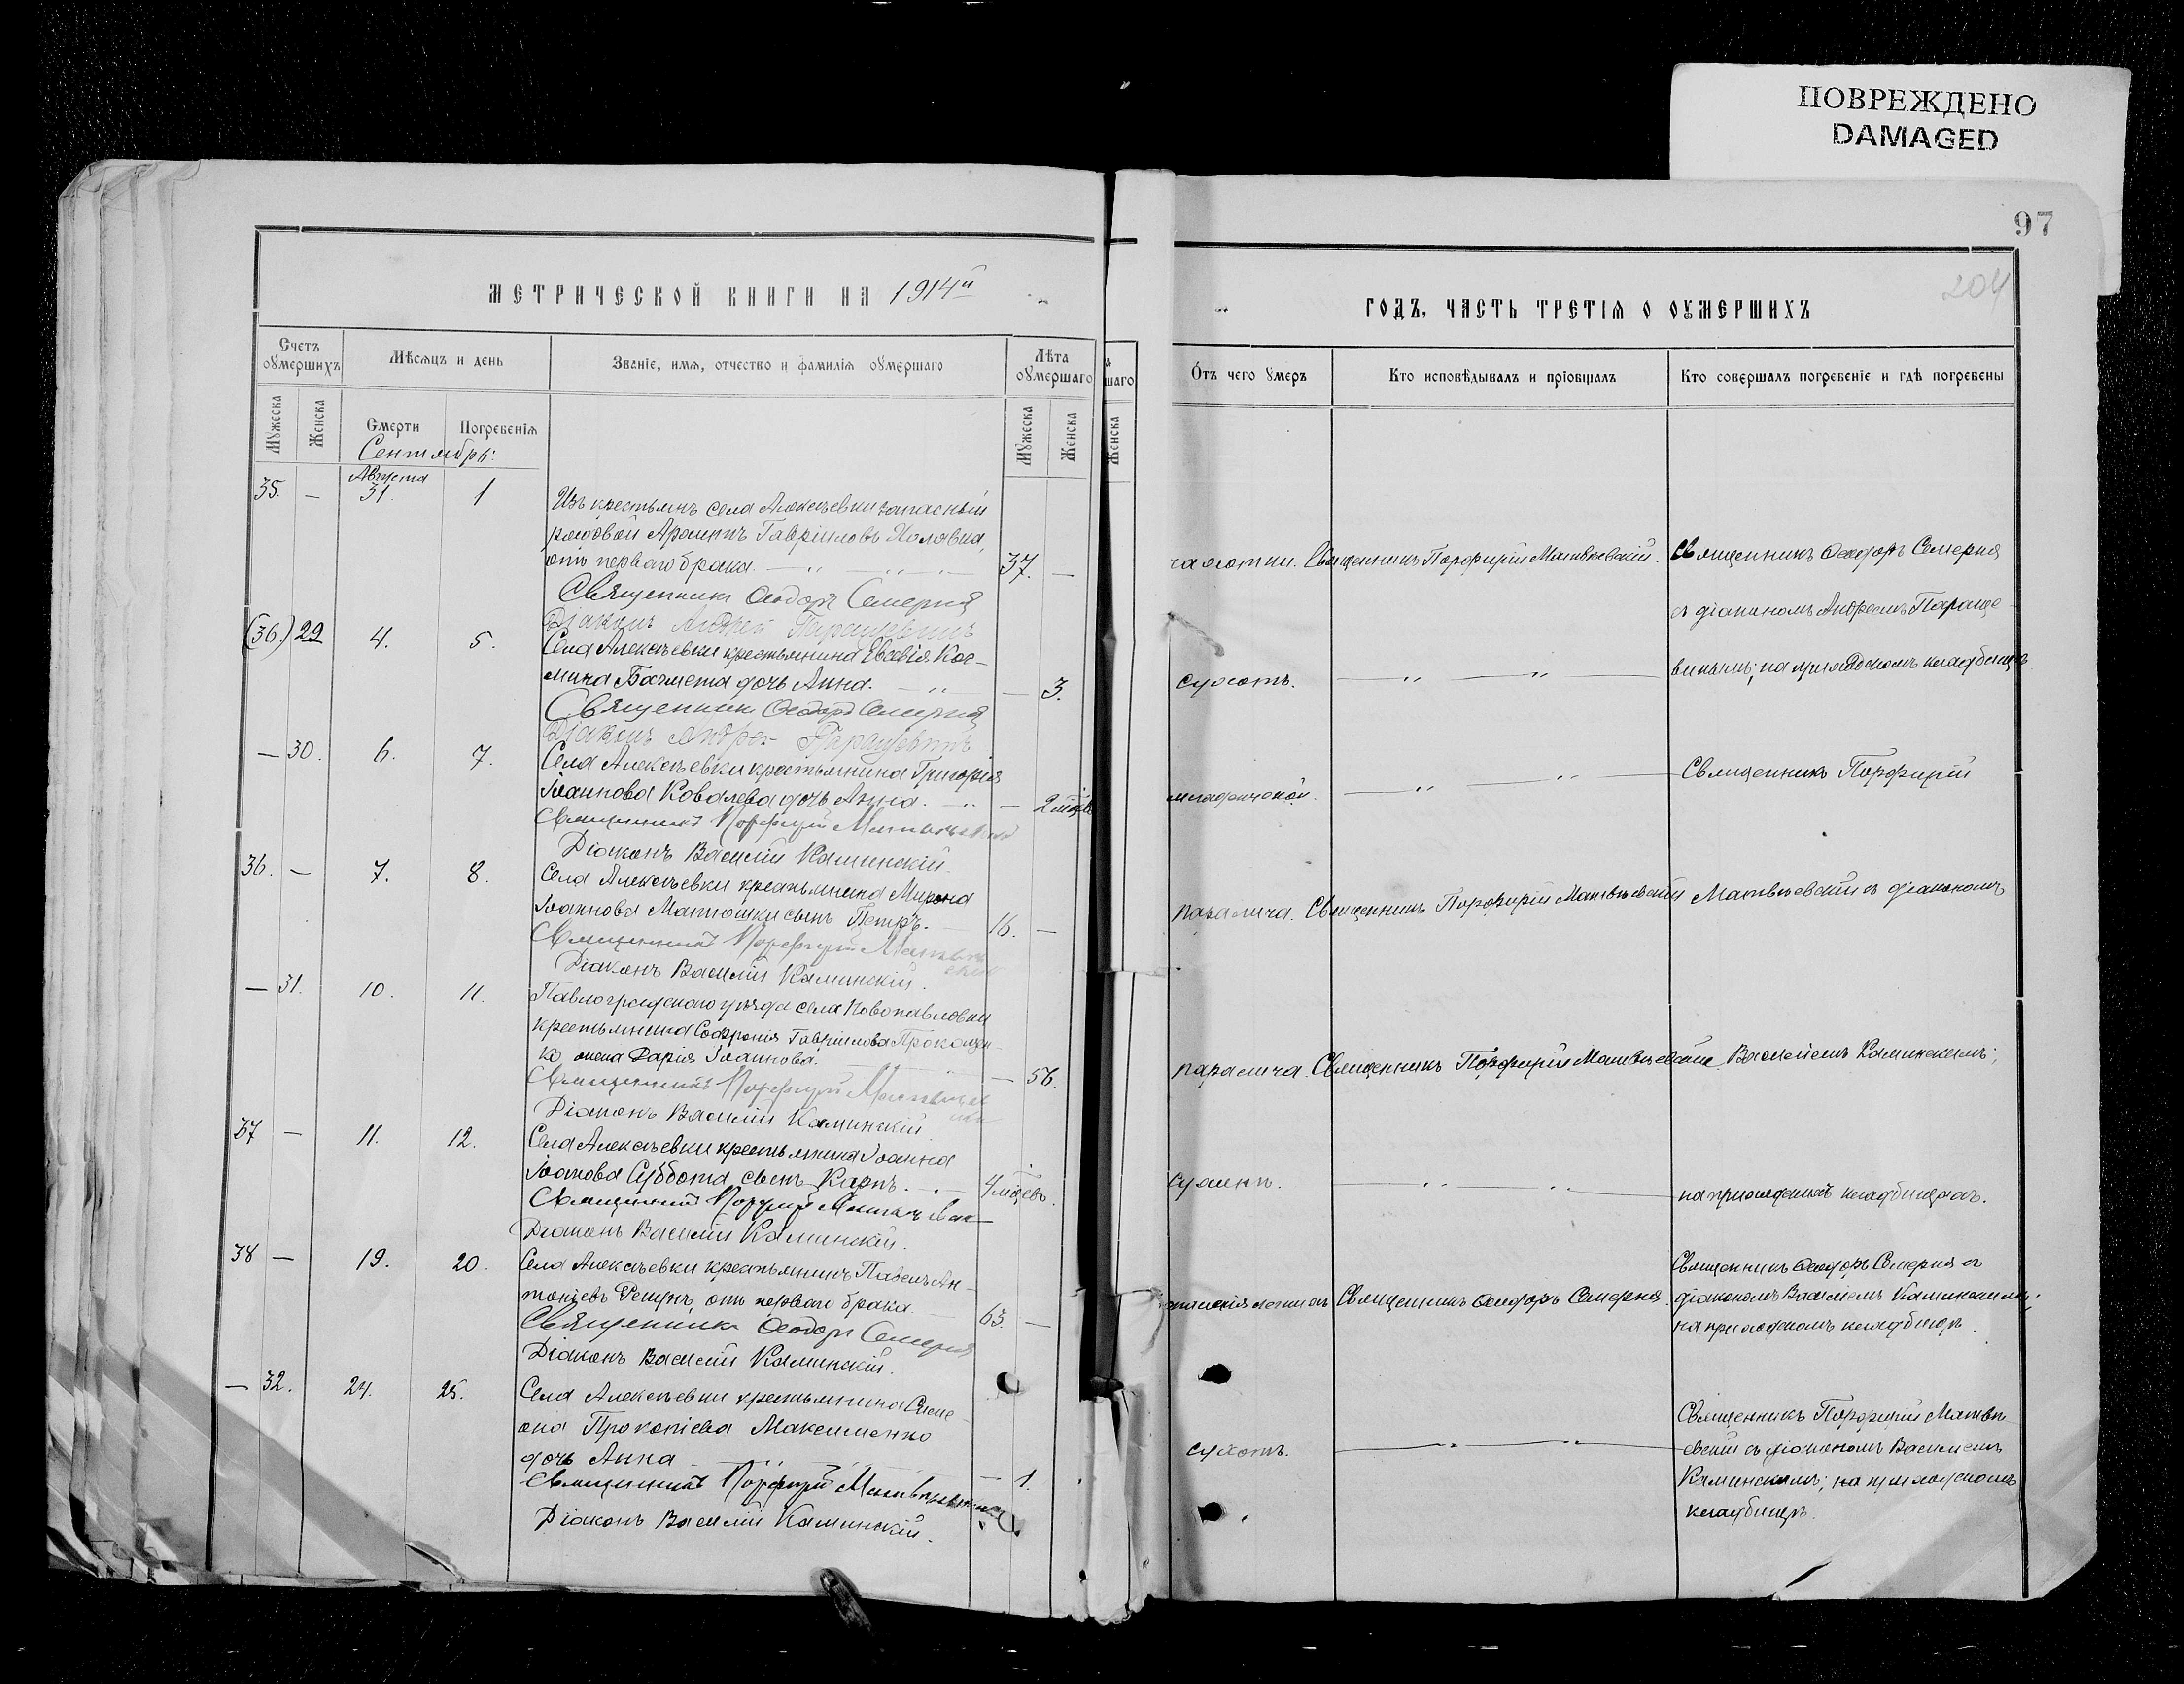 ПОВРЕЖДЕНО
DAMAGED
97
204
МЕТРИЧЕСКОЙ КНИГИ НА 1914й
ГОДЪ, ЧАСТЬ ТРЕТІЯ О ОУМЕРШИХЪ
Счетъ оумершихъ
Мѣсяцъ и день
Званіе, имя, отчество и фамилія оумершаго
Лѣта оумершаго
Отъ чего умеръ
Кто исповѣдывалъ и пріобщалъ
Кто совершалъ погребеніе и гдѣ погребены
Мужеска
Женска
Смерти
Погребенія
Мужеска
Женска
Женска
Сентябрь:
Августа
35. — 31. 1
Изъ крестьянъ села Алексѣевки запасный
рядовой Гавріиловъ
отъ перваго брака. 37. —
чахотки. Священникъ Порфирій Матвѣевскій. Священникъ Ѳеодоръ Семерня
Священникъ Ѳеодоръ Семерня
Діаконъ Андрей
съ діакономъ Андреемъ
(36.) 29 4. 5.
Села Алексѣевки крестьянина Евсевія Кос-
мина Бачмета дочь Анна. — 3.
сухотъ.
на приходскомъ кладбищѣ
Священникъ Ѳеодоръ Семерня
Діаконъ Андрей
— 30. 6. 7.
Села Алексѣевки крестьянина Григорія
Іоаннова Ковалева дочь Анна. — 2 мѣс.
младенческой.
Священникъ Порфирій
Священникъ Порфирій Матвѣевскій
Діаконъ Василій Каминскій.
36. — 7. 8.
Села Алексѣевки крестьянина Мирона
Іоаннова Матюшки сынъ Петръ. 16. —
паралича. Священникъ Порфирій Матвѣевскій Матвѣевскій съ діакономъ
Священникъ Порфирій Матвѣевскій
Діаконъ Василій Каминскій.
— 31. 10. 11.
Павлоградскаго уѣзда села Новопавловки
крестьянина Софронія Гавріилова Прокопен-
ко жена Дарія Іоаннова. — 56.
паралича. Священникъ Порфирій Матвѣевскій Василіемъ Каминскимъ;
Священникъ Порфирій Матвѣевскій
Діаконъ Василій Каминскій
37 — 11. 12.
Села Алексѣевки крестьянина Іоанна
Іоанова Суббота сынъ Карпъ. 4 мѣсяцевъ.
на приходскихъ кладбищахъ.
Священникъ Порфирій Матвѣевскій
Діаконъ Василій Каминскій.
38 — 19. 20.
Села Алексѣевки крестьянинъ Павелъ Ан-
тоніевъ отъ перваго брака. 63. —
легкихъ Священникъ Ѳеодоръ Семерня.
Священникъ Ѳеодоръ Семерня съ
діакономъ Василіемъ Каминскимъ;
на приходскомъ кладбищѣ.
Священникъ Ѳеодоръ Семерня
Діаконъ Василій Каминскій.
— 32. 24. 25.
Села Алексѣевки крестьянина Симе-
она Прокопіева Максименко
дочь Анна — 1.
сухотъ.
Священникъ Порфирій Матвѣ-
евскій съ діакономъ Василіемъ
Каминскимъ; на приходскомъ
кладбищѣ.
Священникъ Порфирій Матвѣевскій
Діаконъ Василій Каминскій.